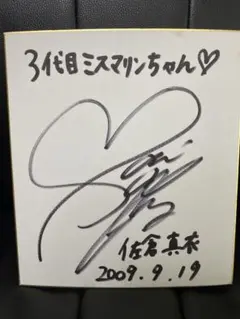 3代目ミスマリンちゃん♡
佐倉真衣
2009.9.19